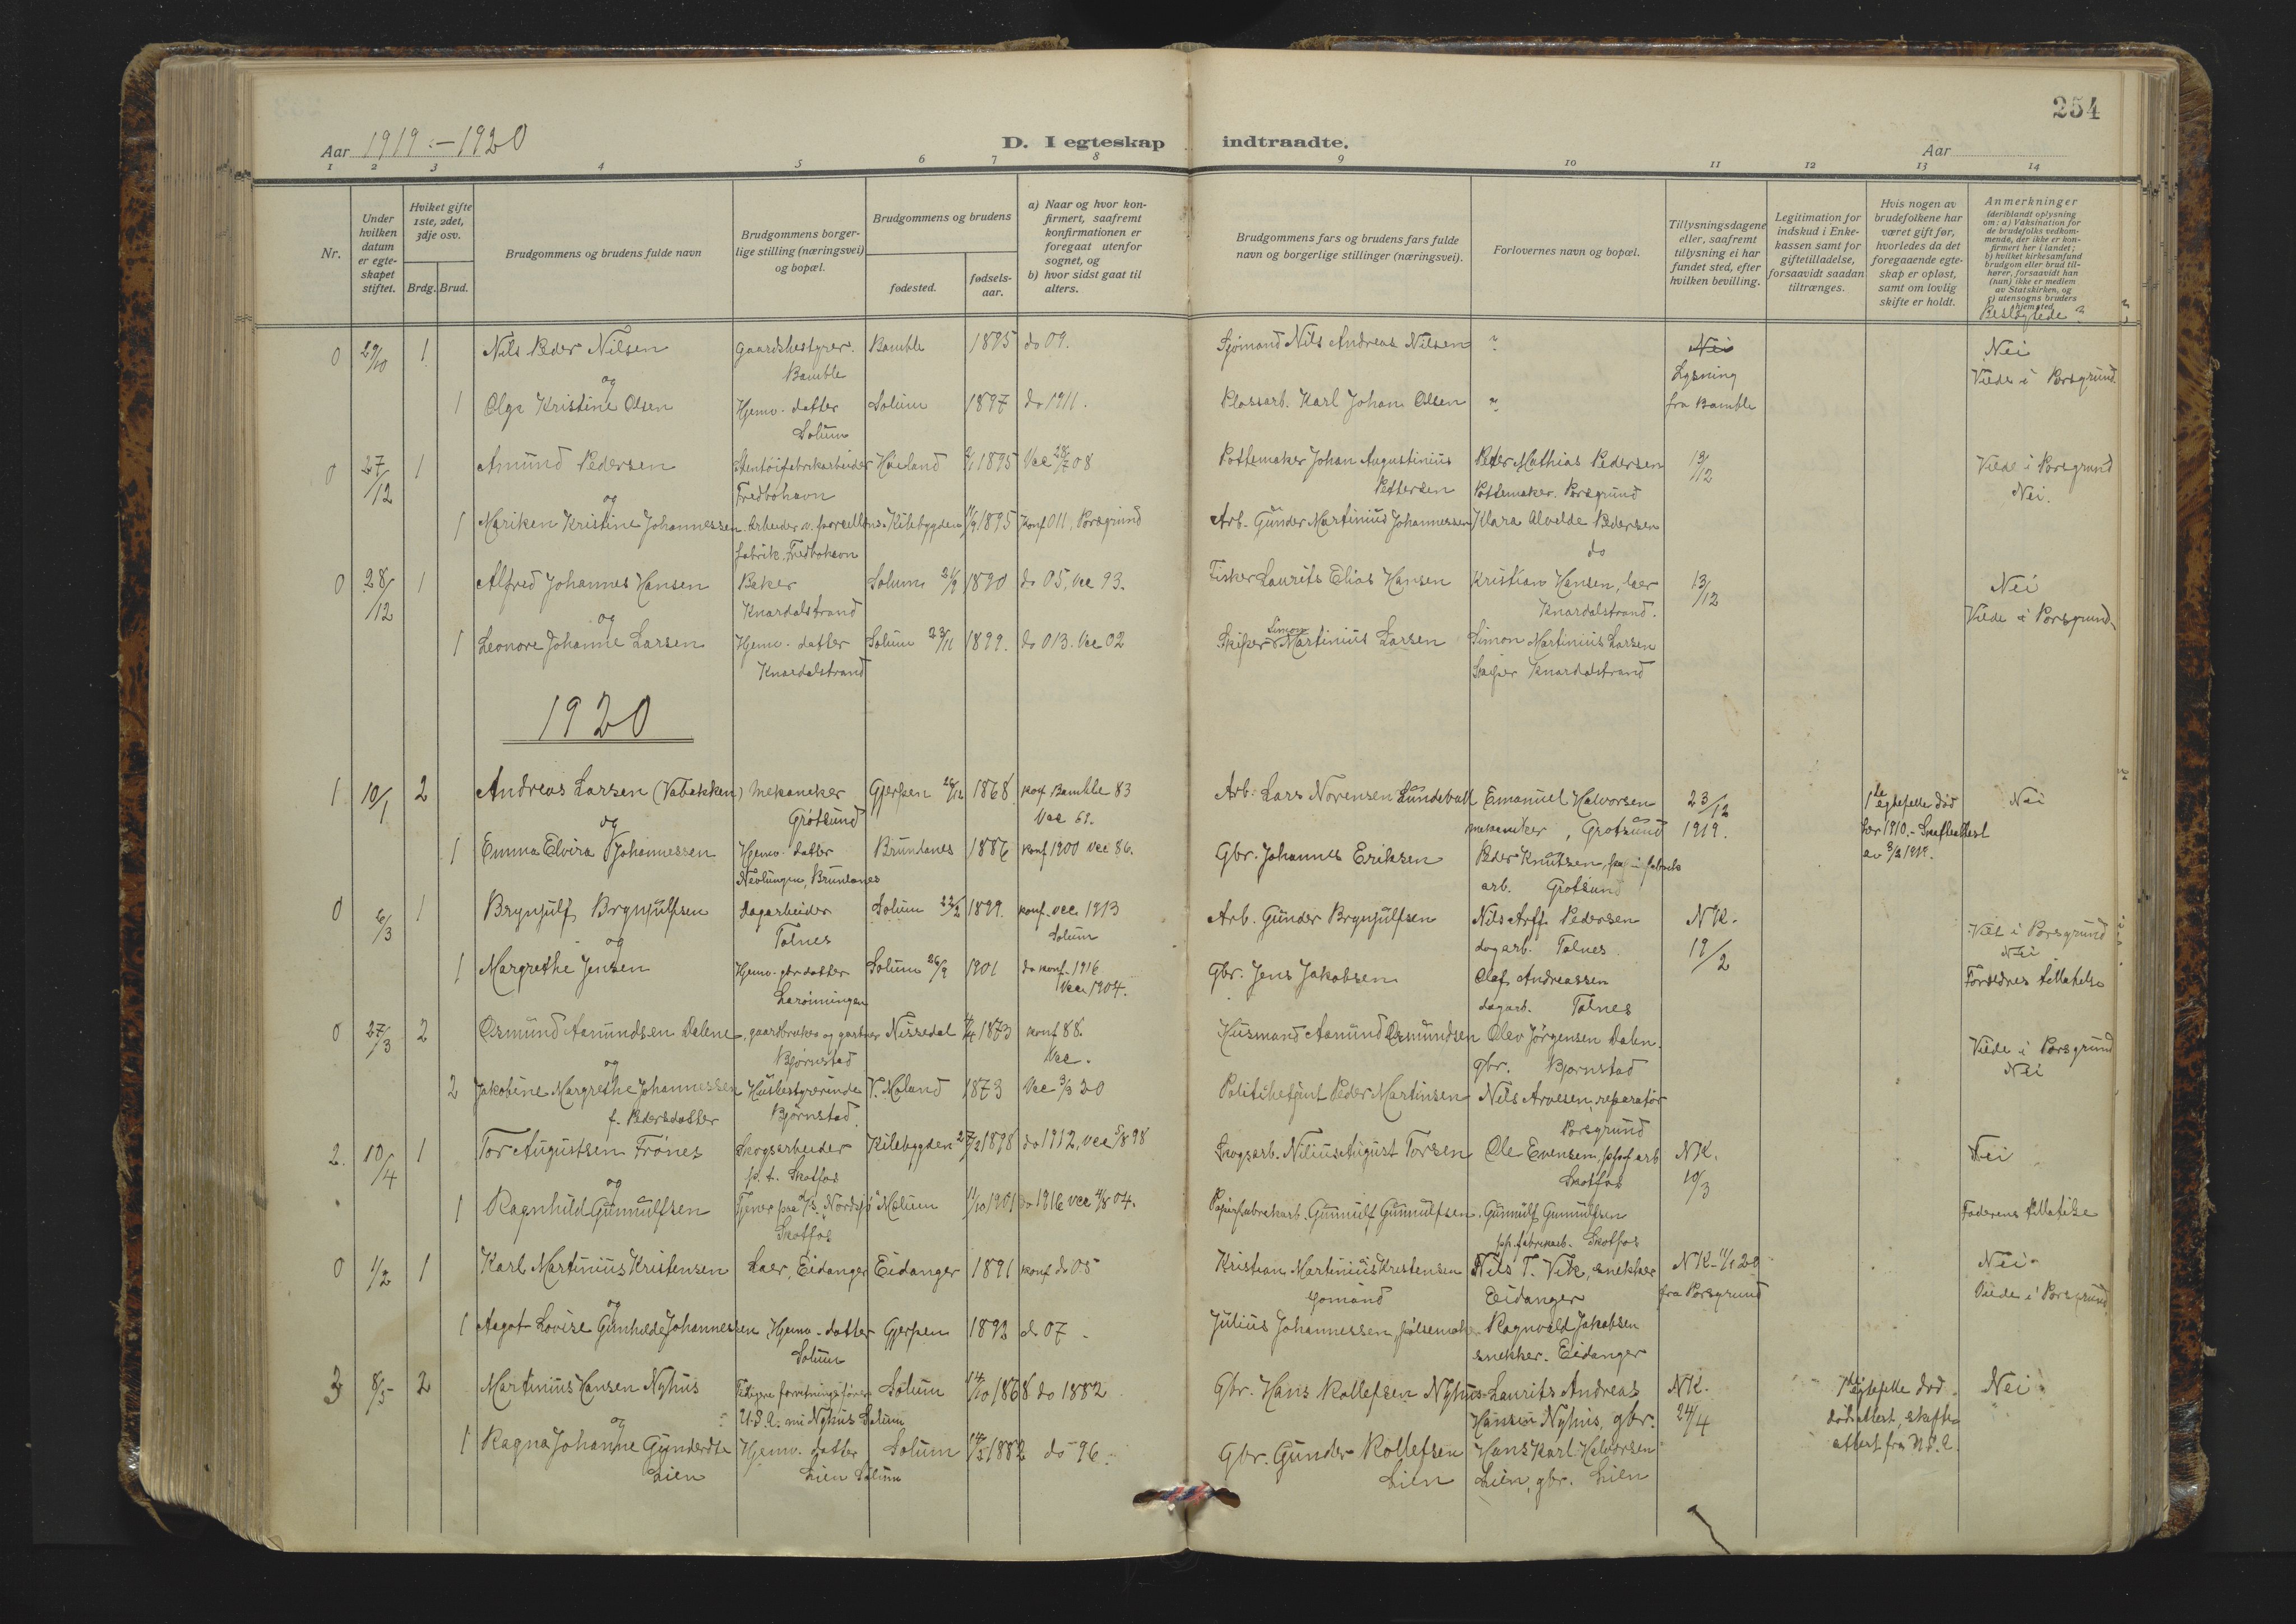 254
Aar 1919 - 1920
D. I egteskap indtraadte.
Aar
1 2 3 4 5 6 7 8 9 10 11 12 13 14
Nr.
Under hvilken datum er egteskapet stiftet.
Hviket gifte 1ste, 2det, 3dje osv.
Brdg. Brud.
Brudgommens og brudens fulde navn
Brudgommens borgerlige stilling (næringsvei) og bopæl.
Brudgommens og brudens
fødested.
fødselsaar.
a) Naar og hvor konfirmert, saafremt konfirmationen er foregaat utenfor sognet, og
b) hvor sidst gaat til alters.
Brudgommens fars og brudens fars fulde navn og borgerlige stillinger (næringsvei).
Forlovernes navn og bopæl.
Tillysningsdagene eller, saafremt tillysning ei har fundet sted, efter hvilken bevilling.
Legitimation for indskud i Enkekassen samt for giftetilladelse, forsaavidt saadan tiltrænges.
Hvis nogen av brudefolkene har været gift før, hvorledes da det foregaaende egteskap er opløst, samt om lovlig skifte er holdt.
Anmerkninger
(deriblandt oplysning om: a) Vaksination for de brudefolks vedkommende, der ikke er konfirmert her i landet;
b) hvilket kirkesamfund brudgom eller brud tilhører, forsaavidt han (hun) ikke er medlem av Statskirken, og
c) utensogns bruders hjemsted
Beslegtede?
0 29/10 1 Nils Peder Nilsen Gaardsbestyrer. Bamble 1895 do 09. Sjømand Nils Andreas Nilsen ? Nei Nei
og Bamble Lysning Viede i Porsgrund
1 Olga Kristine Olsen Hjemv. datter Solum 1897 do 1911. Plassarb. Karl Johan Olsen " fra Bamble
Solum
0 27/12 1 Amund Pedersen Stentøifabrikarbeider 1895 Vac 08 Pottemaker Johan Augustinius Peder Mathias Pedersen 13/12 Viede i Porsgrund
og Fredbohavn Pettersen Pottemaker. Porsgrund Nei.
1 Mariken Kristine Johannessen Arbeider v. porcellæns- Kilebygden 1895 Konf 011, Porsgrund Arb. Gunder Martinius Johannessen Klara Alvelde Pedersen
fabrik, Fredbohavn do
0 28/12 1 Alfred Johannes Hansen Baker Solum 1890 do 05, Vac 93. Fisker Laurits Elias Hansen Kristian Hansen, laer 13/12 Nei
og Knardalstrand Knardalstrand. Viede i Porsgrund
1 Leonore Johanne Larsen Hjemv. datter Solum 23/11 1899. do 013. Vac 02 Skipper Simon Martinius Larsen Simon Martinius Larsen
Knardalstrand Skipper Knardalstrand
1920
1 10/1 2 Andreas Larsen (Vabakken) Mekaniker Gjerpen 1868 konf Bamble 83 Arb. Lars Norensen Lundevall Emanuel Halvorsen 23/12 1ste egtefelle død Nei
og Grotsund Vac 69. mekaniker, Grotsund 1919. før 1910.- Skifteattest
1 Emma Elvira Johannessen Hjemv. datter Brunlanes 1886 konf 1900 vac 86. Gbr. Johannes Eriksen Peder Knutsen, av 3/3 1919.
Nevlungen, Brunlanes arb. Grotsund
0 6/3 1 Brynjulf Brynjulfsen dagarbeider Solum 22/2 1899. konf. vac 1913 Arb. Gunder Brynjulfsen Nils Arff Pedersen NK. Viet i Porsgrund
og Tolnes Solum dagarb. Tolnes 19/2 Nei
1 Margrethe Jensen Hjemv. gbr datter Solum 26/9 1901 do konf. 1916 Gbr. Jens Jakobsen Olaf Andreassen Forældres tillatelse
Vac 1904. dagarb. Tolnes
0 27/3 2 Osmund Aamundsen Dalene, gaardbruker og gartner Nissedal 1873 konf 88. Husmand Aamund Osmundsen Olav Jørgensen Dalen. Viede i Porsgrund
og Bjørnstad Vac. gbr. Bjørnstad Nei
2 Jakobine Margrethe Johannessen Husbestyrerinde V. Moland 1873 Vac 3/3 20 Politibetjent Peder Martinsen Nils Arvesen, reparatør
f. Pedersdatter Bjørnstad. Porsgrund
2. 10/4 1 Tor Augustsen Frønes Skogsarbeider Kilebygden 1898 do 1912, vac 5/8 98 Skogsarb. Nilius August Torsen Ole Evensen, arb NK. Nei
og p.t. Skotfos Skotfos 19/3
1 Ragnhild Gunnulfsen Tjener paa Melum 11/10 1901 do 1916 vac 4/8 04. Papirfabrikarb. Gunnulf Gunnulfsen. Gunnulf Gunnulfsen Faderens tillatelse
Skotfos pp. fabrikarb. Skotfos
0 1/2 1 Karl Martinius Kristensen Laer, Eidanger Eidanger 1891 konf do 05 Kristian Martinius Kristensen Nils T. Vik, snekker NK 1/1 20 Nei.
og Sjømand Eidanger fra Porsgrund Viede i Porsgrund
1 Aagot Lovise Gunhilde Johannessen Hjemv. datter Gjerpen 1892 do 07. Julius Johannessen, pølsemaker Ragnvald Jakobsen
Solum snekker. Eidanger
3 8/5 2 Martinius Hansen Nyhus Tidligere forretningsfører Solum 14/10 1868 do 1882 Gbr. Hans Rollefsen Nyhus Laurits Andreas NK. 1ste egtefelle død. Nei.
og U.S.A. nu Nyhus Solum Hansen Nyhus, gbr. 24/4 dødsattest, skifte-
1 Ragna Johanne Gundersdtr Hjemv. datter Solum 1882 do 96. Gbr. Gunder Rollefsen Hans Karl Halvorsen attest fra U.S.A.
Lien Lien Solum Lien Lien, gbr. Lien